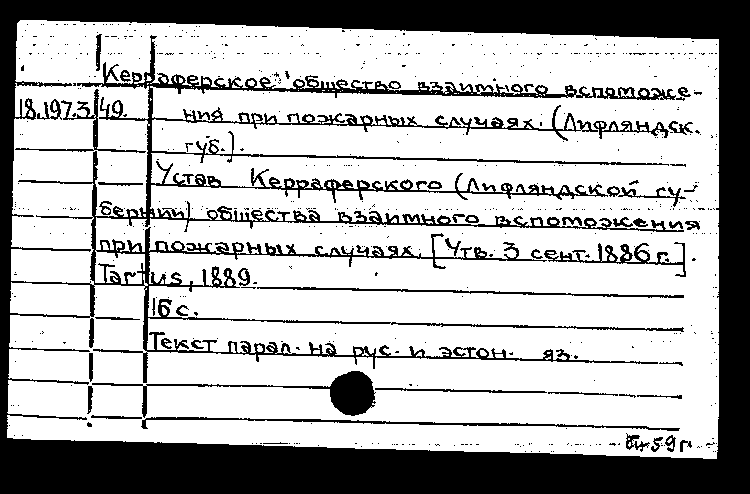 Керраферское общество взаимного вспоможе-
18.197.3.49. ния при пожарных случаях. (Лифляндск.
губ.).
Устав Керраферского (Лифляндской гу-
бернии) общества взаимного вспоможения
при пожарных случаях. [Утв. 3 сент. 1886 г.].
Tartus, 1889.
16 с.
Текст парал. на рус. и эстон. яз.
59 г